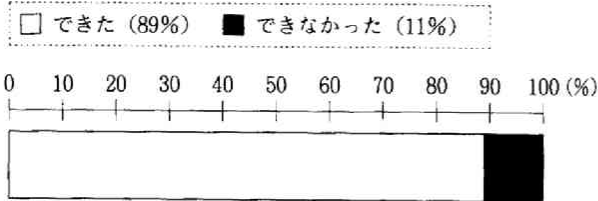 □ できた (89%) ■ できなかった (11%)
0 10 20 30 40 50 60 70 80 90 100 (%)